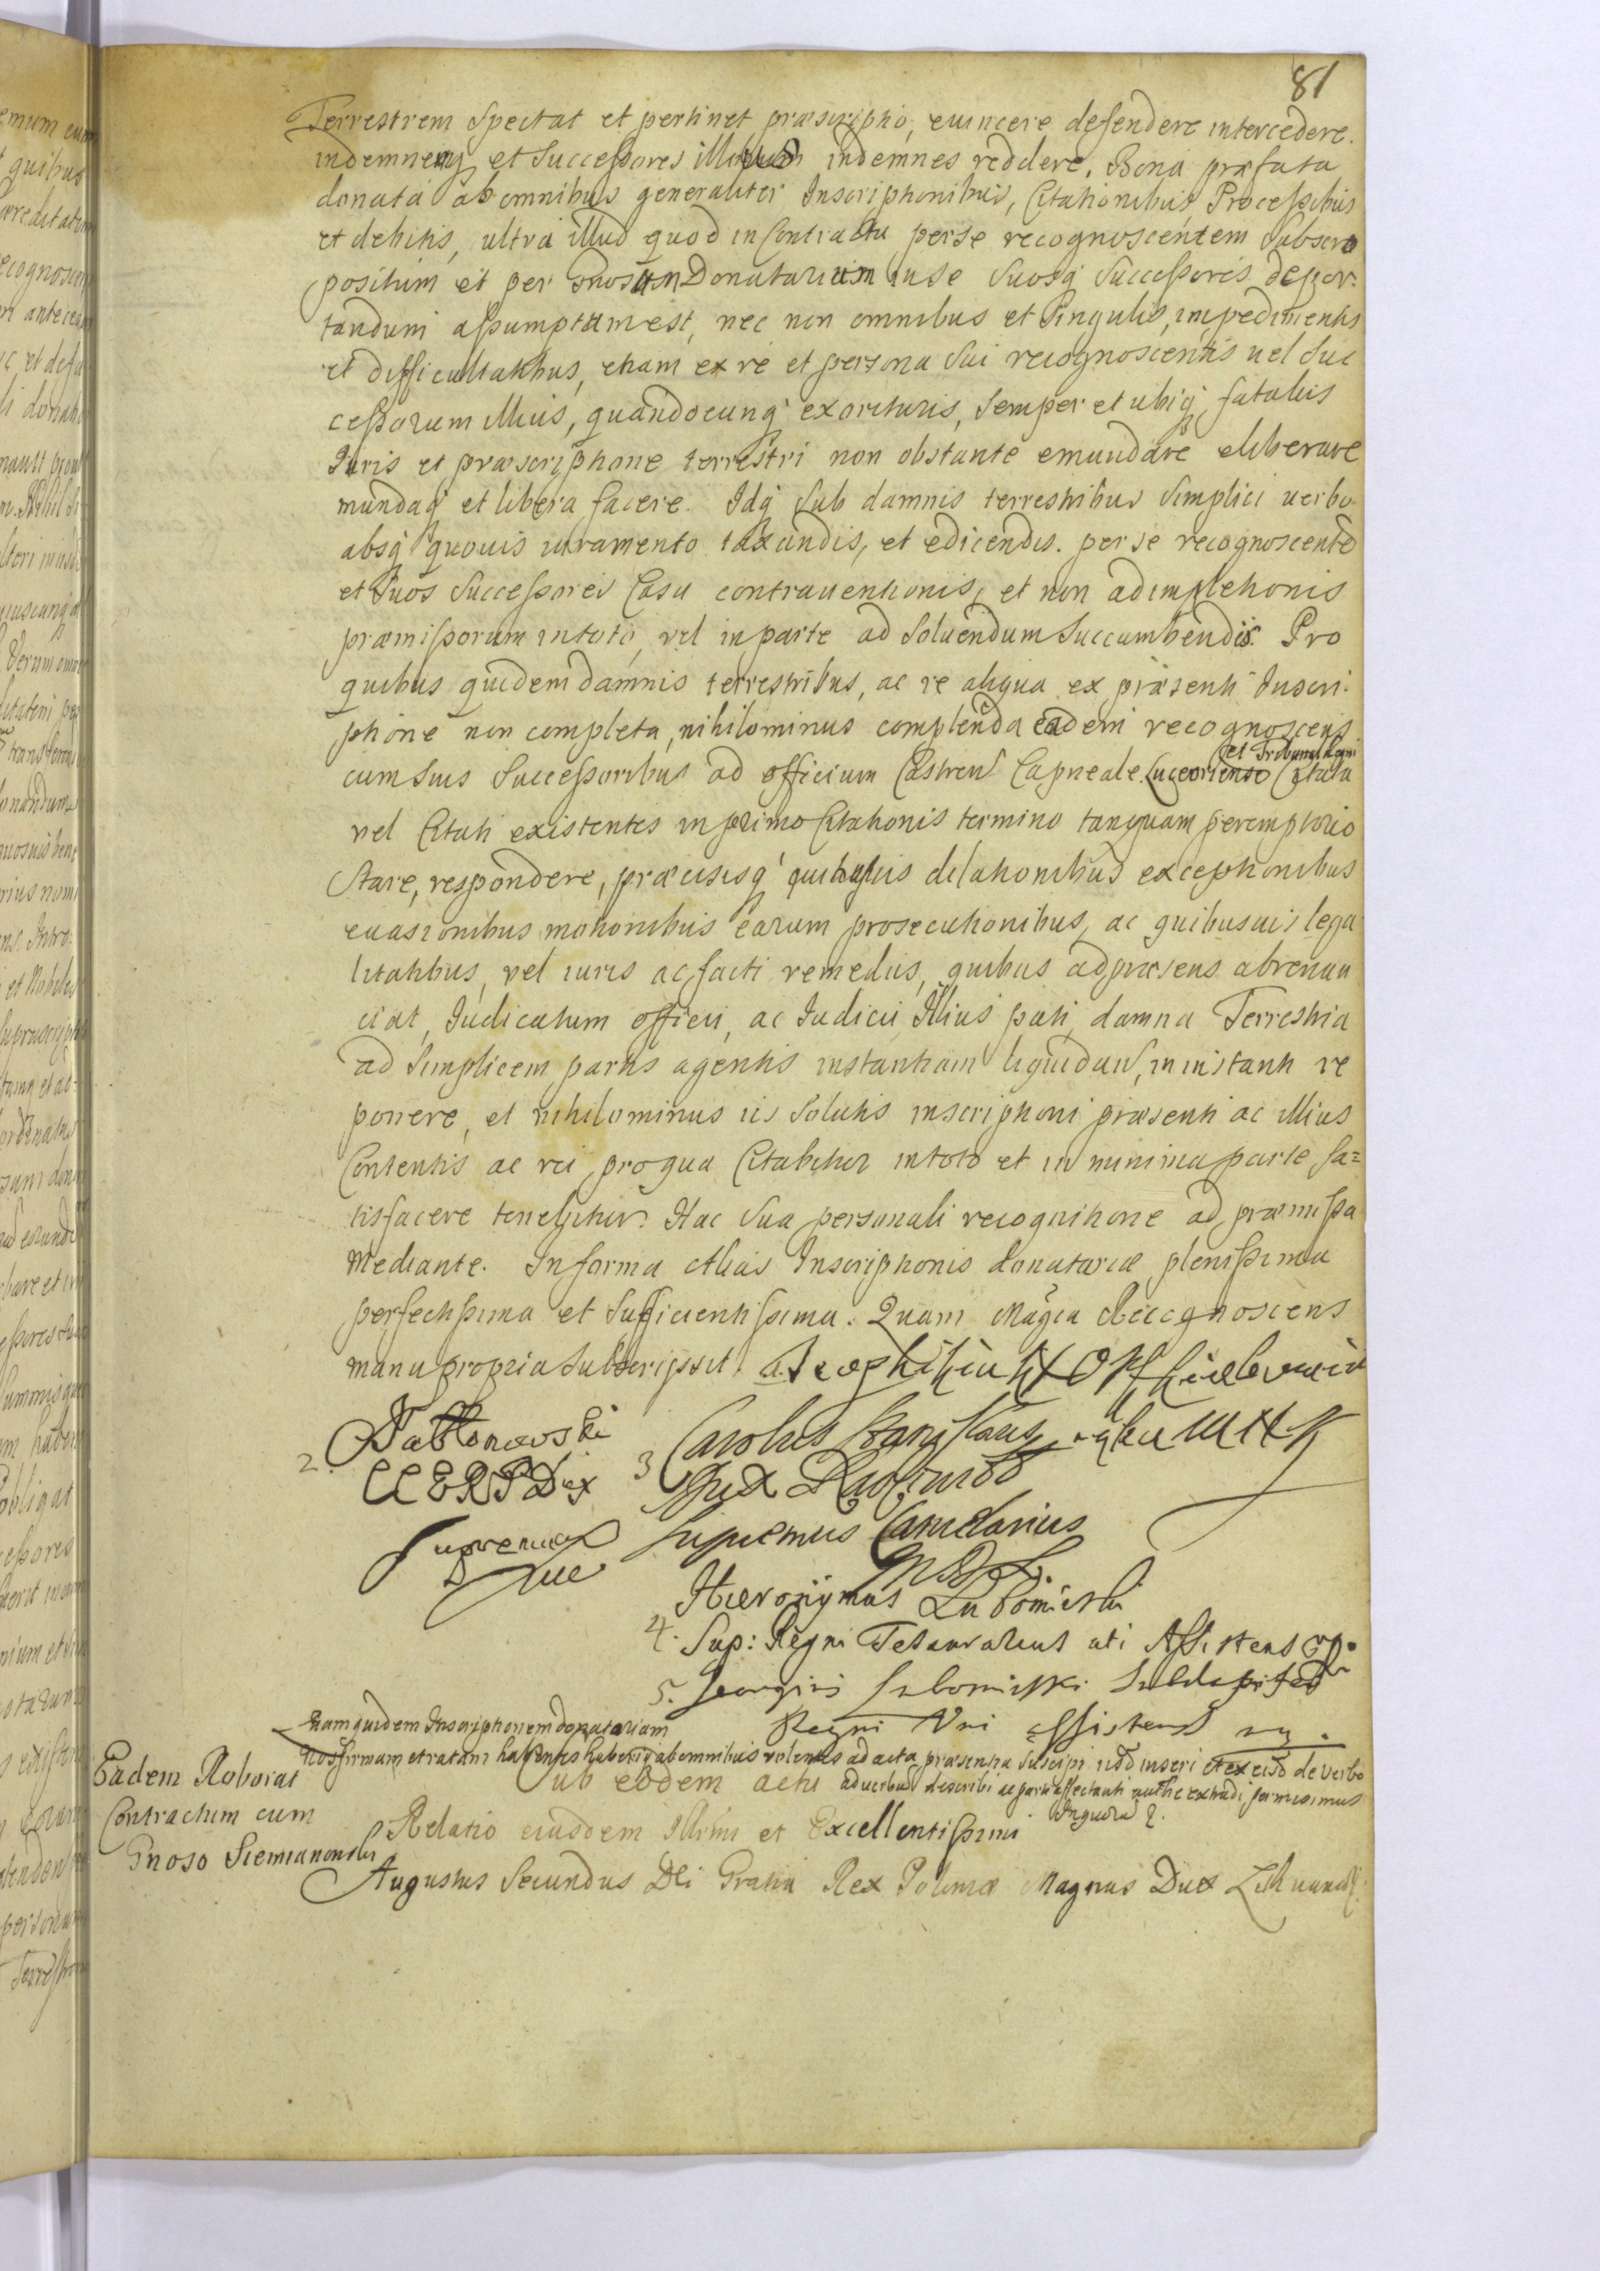 81
Terrestrem Spectat et pertinet præscriptio, euincere defendere intercedere.
indemnemq et Successores illius indemnes reddere. Bona præfata
donata ab omnibus generaliter Inscriptionibus, Citationibus Processibus
et debitis, ultra illud quod in Contractu per se recognoscentem
positum et per Gnosum Donatarium in se Suosq Successores depor-
tandum assumptum est, nec non omnibus et Singulis, impedimentis
et difficultatibus, etiam ex re et persona Sui recognoscentis uel Suc
cessorum illius, quandocunq exorituris, Semper et ubiq fatalis
Iuris et præscriptione terrestri non obstante emundare eliberare
mundaq et libera facere. Idq Sub damnis terrestribus Simplici uerbo
absq quouis iuramento taxandis, et edicendis. per se recognoscente
et Suos Successores Casu contrauentionis, et non adimpletionis
præmissorum in toto, vel in parte ad Soluendum Succumbendis. Pro
quibus quidem damnis terrestribus, ac re aliqua ex præsenti Inscri-
ptione non completa, nihilominus complenda eadem recognoscens
et Tribunal Regni
cum Suis Successoribus ad officium Castren Capneale Luceoriense Citata
vel Citati existentes in primo Citationis termino tanquam peremptorio
Stare, respondere, præcisisq quibusuis dilationibus exceptionibus
euasionibus motionibus earum prosecutionibus, ac quibusuis lega
litatibus, vel iuris ac facti remediis, quibus ad præsens abrenun
ciat, Iudicatum officii, ac Iudicii Illius pati, damna Terrestria
ad Simplicem partis agentis instantiam liquidan, in instanti re
ponere, et nihilominus iis Solutis inscriptioni præsenti ac illius
Contentis ac rei pro qua Citabitur in toto et in minima parte Sa=
tisfacere tenebitur. Hac Sua personali recognitione ad præmissa
Mediante. In forma alias Inscriptionis donatariæ plenissima
perfectissima et Sufficientissima. Quam Magca Recognoscens
manu propria Subscripsit.
2. Jabłonowski 3 Carolus Stanislaus
Dux Dux Radziwil
Supremus Supremus Cancelarius
Hieronymus Lubomirski
4. Sup: Regni Tesaurarius uti Assistens
5. Georgius Lubomirski Subdapifer
Regni Uti Assistens
Eam quidem Inscriptionem donatariam
Nos firmam et ratam habentes haberiq ab omnibus volentes ad acta præsentia Suscipi illud inseri et ex eisd de verbo
Sub eodem actu ad uerbum describi ac parti affectanti authe extradi permisimus
In quor
Eadem Roborat
Contractum cum
Gnoso Siemianowski
Relatio eiusdem Illrmi et Excellentissimi
Augustus Secundus Dei Gratia Rex Poloniæ Magnus Dux Lithuaniæ